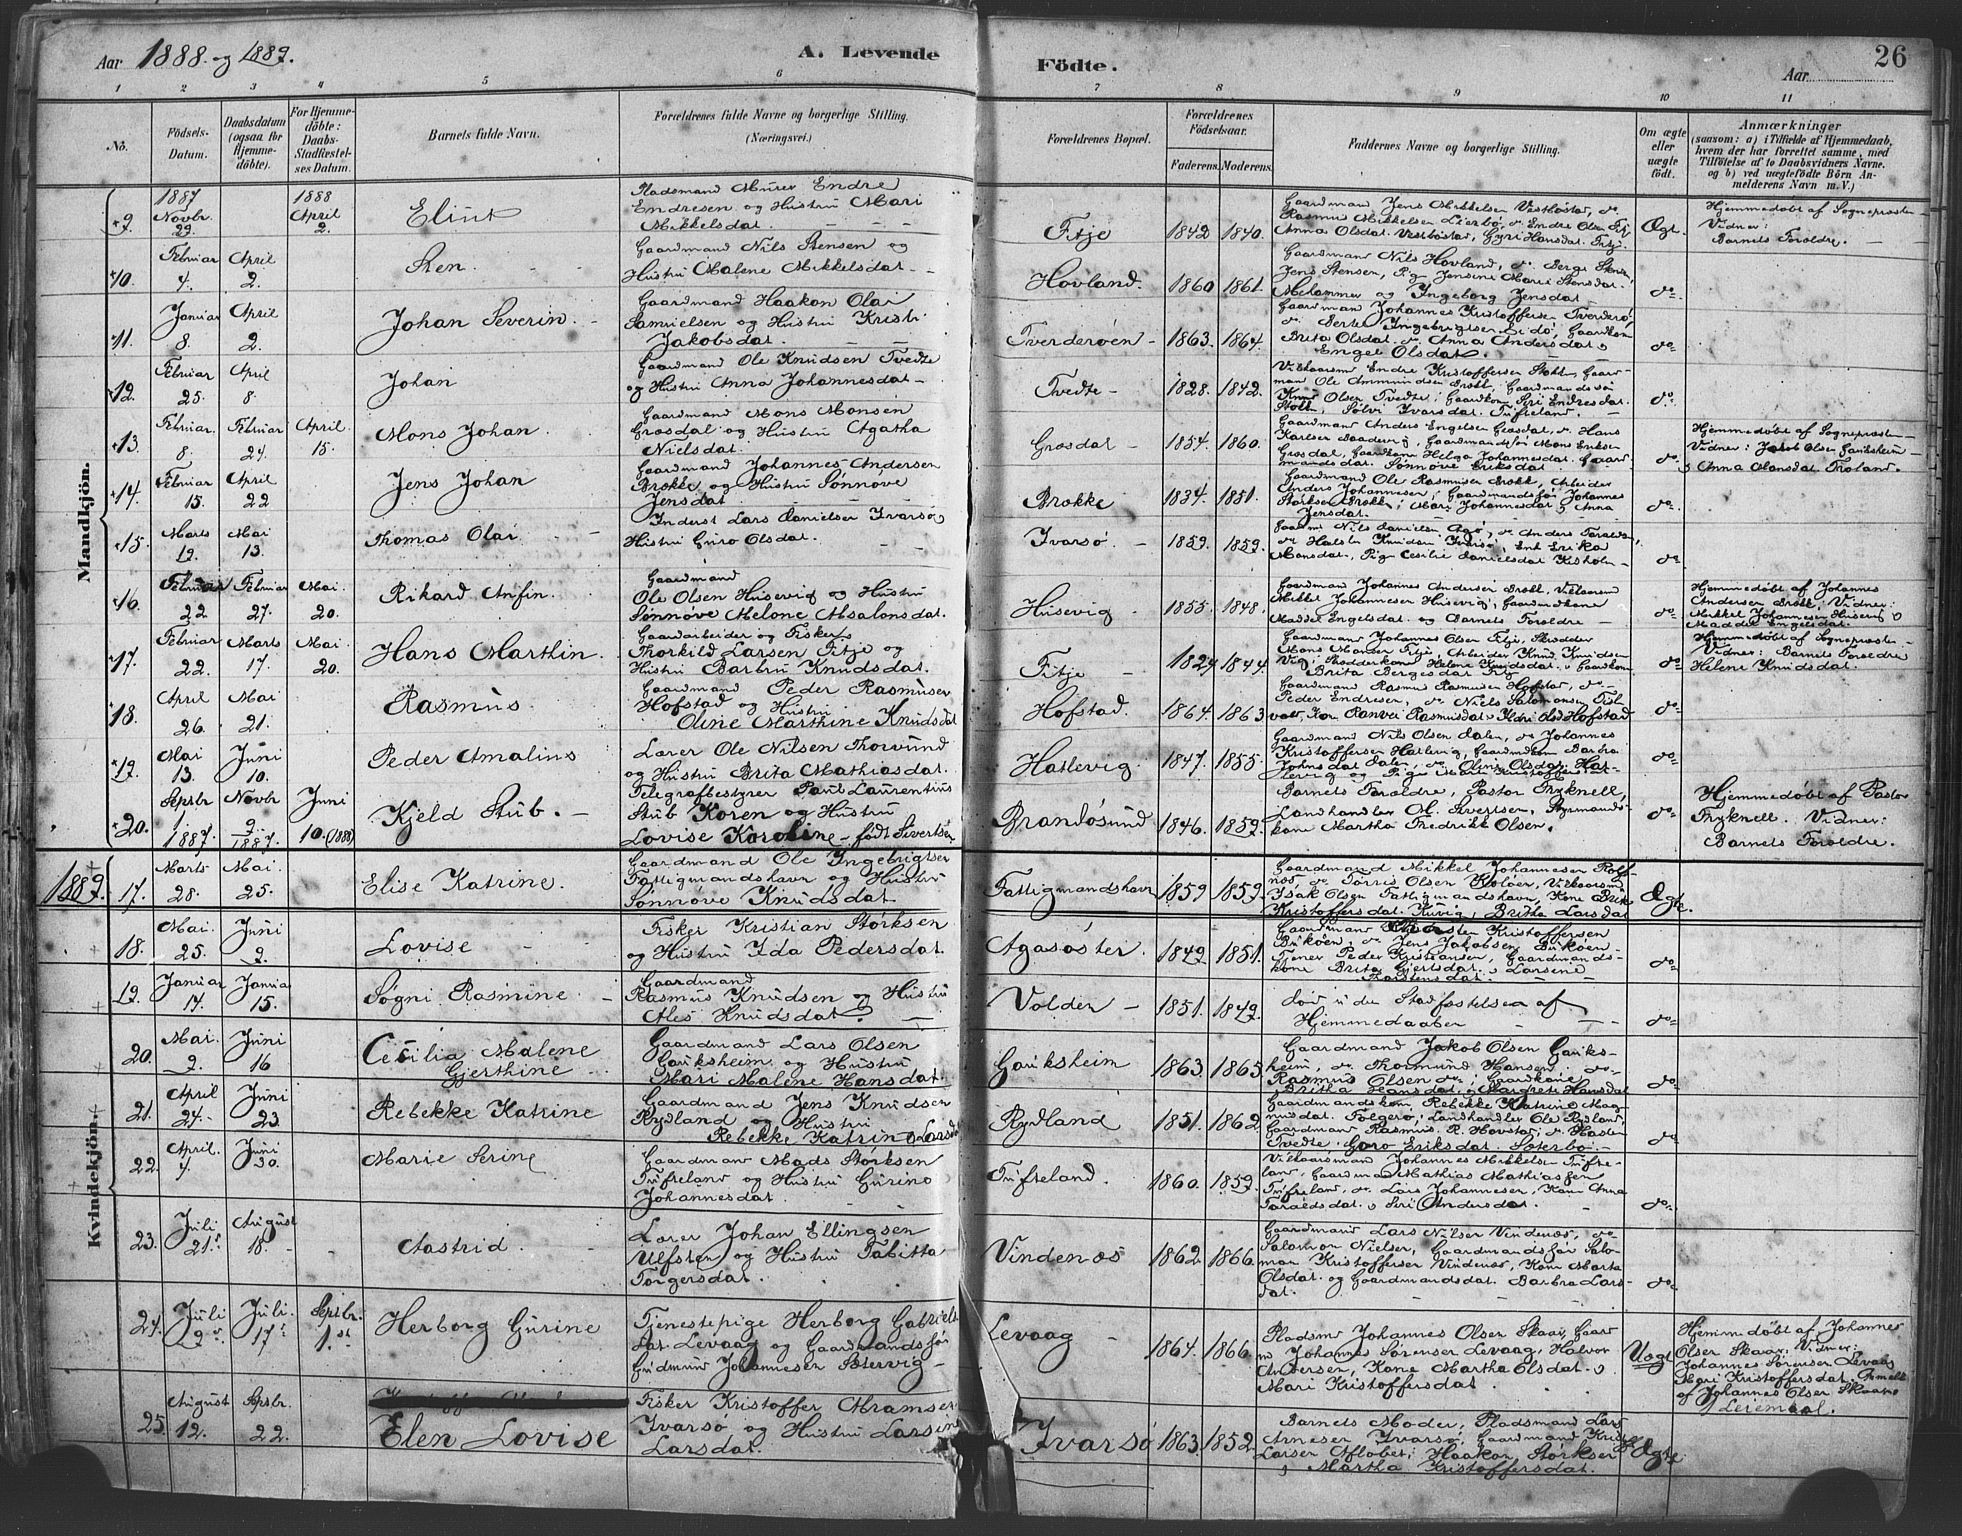 Aar 1888. og 1889.
A. Levende
Födte.
Aar
26
1 2 3 4 5 6 7 8 9 10 11
No.
Födsels-
Datum.
Daabsdatum
(ogsaa for
Hjemme-
döbte).
For Hjemme-
döbte:
Daabs-
Stadfæstel-
ses Datum.
Barnets fulde Navn.
Forældrenes fulde Navne og borgerlige Stilling.
(Næringsvei.)
Forældrenes Bopæl.
Forældrenes
Födselsaar.
Faderens. Moderens.
Faddernes Navne og borgerlige Stilling.
Om ægte
eller
uægte
födt.
Anmærkninger
(saasom: a) i Tilfælde af Hjemmedaab,
hvem der har forrettet samme, med
Tilföielse af to Daabsvidners Navne.
og b) ved uægtefödte Börn An-
melderens Navn m.V.)
Mandkjön.
9. 1887 Novbr. 29. 1888 April 2.
Elint
Pladsmand Murer Endre
Endresen og Hustru Mari
Mikkelsdat.
Fitje 1842 1840.
Gaardmand Jens Mikkelsen Vestbøstad, do
Rasmus Mikkelsen Lierbø, do Endre Olsen Fitje
Anna Olsdat. Vestbøstad, Gyri Hansdat. Fitje.
Ægt.
Hjemmedøbt af Sognepræsten
Vidner:
Barnets Foroldre.
10. Februar 4. April 2.
Sten
Gaardmand Nils Stensen og
Hustru Malene Mikkelsdat
Hovland. 1860 1861.
Gaardmand Nils Hovland, do Berge Stens.
Jens Stensen, Pige Jensine Marie Stensdat.
Mehammer og Ingeborg Jensdat
do
11. Januar 8. April 2.
Johan Severin.
Gaardmand Haakon Olai
Samuelsen og Hustru Kristi
Jakobsdat.
Tverderøen 1863. 1864.
Gaardmand Johannes Kristoffersen Tverderø,
Brita Olsdat. do Anna Andersdat.
Engel Olsdat.
do
12. Februar 25. April 8.
Johan
Gaardmand Ole Knudsen Tvedte
og Hustru Anna Johannesdat
Tvedte 1828. 1842.
Vilkaarsm. Endre Kristoffersen Stolt, Gaard-
man Ole Ammundsen Drøkl, Gaardmandssøn
Knud Olsen Tvedte, Gaardkone Siri Endresdat.
Sølvi Ivarsdat. Tufteland.
do
13. Februar 8. Februar 24. April 15.
Mons Johan.
Gaardmand Mons Monsen
Grosdal og Hustru Agatha
Nielsdat.
Grosdal 1854. 1860.
Gaardmand Anders Engelsen Grosdal, do Hans
Karlsen, Gaardmandssøn Mons Eriksen
Grosdal, Gaardkone Helga Johannesdat. Gaard-
mandsdat. Sønnøve Eriksdat.
do
Hjemmedøbt af Sognepræsten
Vidner: Jakob Olsen Gauksheim
Anna Olansdat Froland.
14. Februar 15. April 22
Jens Johan
Gaardmand Johannes Andersen
Brokke og Hustru Sønnøve
Jensdat
Brokke 1834. 1851.
Gaardmand Ole Rasmusen Drøkk, Arbeider
Anders Johannesen, Gaardmandssøn Johannes
Størksen Drøkk, Mari Johannesdat & Anna
Jensdat.
do
15. Marts 19. Mai 13.
Thomas Olai
Inderst Lars Danielsen Ivarsø
Hustru Guro Olsdat.
Ivarsø. 1859. 1859.
Gaardm. Nils Danielsen Agø, do Anders
do Halsten Knudsen Ivarsø, Enk Erika
Monsdat, Pige Cecilie Danielsdat Kisholm
do
16. Februar 22. Februar 27. Mai 20.
Rikard Anfin.
Gaardmand
Ole Olsen Husevig og Hustru
Sønnøve Melone Absalonsdat.
Husevig 1855. 1848.
Gaardmand Johannes Andersen Drøkl, Vilkaarsm
Mikkel Johannesen Husevig, Gaardmandkone
Madsel Engelsdat og Barnets Foroldre
do
Hjemmedøbt af Johannes
Andersen Drøkl: Vidner:
Mikkel Johannesen Husevig &
Maddel Engelsdat.
17. Februar 22. Marts 17. Mai 20.
Hans Marthin.
Gaardarbeider og Fisker
Thorkild Larsen Fitje og
Hustru Barbru Knudsdat.
Fitje 1824 1844.
Gaardmand Johannes Olsen Fitje, Skrædder
Mons Monsen Fitje, Arbeider Knud Knudsen
Vig, Helene Knudsdat. & Gaardkon
Brita Bergesdat Vig
do
Hjemmedøbt af Sognepræsten
Vidner: Barnets Foroldre
Helene Knudsdat.
18. April 26. Mai 21.
Rasmus
Gaardmand Peder Rasmusen
Hofstad og Hustru
Oline Marthine Knudsdat
Hofstad. 1864. 1863
Gaardmand Rasmus Rasmusen Hofstad, do
Peder Endresen, do Niels Salomonsen Fisk-
vatr, Kon Ranvei Rasmusdat & Ildri Olsd Hofstad
do
19. Mai 13. Juni 10.
Peder Amalius
Lærer Ole Nilsen Thorsund
og Hustru Brita Mathiasdat.
Hatlevig 1847. 1855.
Gaardmand Nils Olsen Dalen, do Johannes
Kristoffersen Hatlevig, Gaardmdkon Barbra
Johnsdat Dalen, do Oline Olsdat Hat-
levig og Pige Mari Kristoffersdat
do
20. Septbr 1. 1887 Novbr 9. 1887. Juni 10. (1888)
Kjeld Stub.
Telegrafbestyrer Paul Laurentius
Stub Koren og Hustru
Lovise Karoline født Sivertsen
Brandøsund 1846. 1859.
Barnets Foroldre, Pastor Fryknell,
Landhandler O. Sivertsen, Styrmands-
kone Martha Fredrikk Olsen.
do
Hjemmedøbt af Pastor
Fryknell. Vidner:
Barnets Foroldre.
1889.
Kvindekjön.
17. Marts 28. Mai 25.
Elise Katrine.
Gaardmand Ole Ingebrigtsen
Fattigmandshavn og Hustru
Sønnøve Knudsdat
Fattigmandshavn 1859 1859.
Gaardmand Mikkel Johannesen Rols-
nøs, do Tørris Olsen Kolver, Vilkaarsm
Isak Olsen Fattigmandshavn, Kone Brite
Kristoffersdat. Kuvig, Britha Larsdat
Ægte.
18. Mai. 25. Juni 9.
Lovise
Fisker Kristian Størksen
og Hustru Ida Pedersdat.
Agasøster. 1849. 1851.
Gaardmand Karsten Kristoffersen
Bukøen, do Jens Jakobsen Bukøen
Tjener Peder Kristiansen, Gaardmands-
kone Brita Gjertsdat. & Larsine
Karstensdat.
do
19. Januar 14. Januar 15.
Søgni Rasmine.
Gaardmand
Rasmus Knudsen og Hustru
Ales Knudsdat.
Volden 1851. 1849.
Død inden Stadfæstelsen af
Hjemmedaaben
do
20. Mai. 7. Juni 16
Cecilia Malene
Gjerthine
Gaardmand Lars Olsen
Gauksheim og Hustru
Mari Malene Hansdat
Gauksheim 1863. 1865.
Gaardmand Jakob Olsen Gauks-
heim, do Thormund Hansen do
Rasmus Olsen do, Gaardkone
Britha Hansdat, Margrete Hansdat
do
21. April 24. Juni 23.
Rebekke Katrine
Gaardmand Jens Knudsen
Rydland og Hustru
Rebekke Katrine Larsdt
Rydland 1851. 1862.
Gaardmandskon Rebekke Katrine Mag-
nusdat. Folgerø, Landhandler Ole Rydland,
Gaardmand Rasmus R. Hovstad, do Hasten
Tvedte, Goro Eriksdat Søterbø.
do
22. April. 4. Juni 30.
Marie Serine
Gaardmand Mads Størksen
Tufteland og Hustru Gurine
Johannesdat.
Tufteland. 1860. 1859.
Vilkaarsmand Johannes Mikkelsen Tufte-
land, Gaardman Mathias Mathiassen
Tufteland, do Lars Johannesen, Kone Anna
Taraldsdat. & Siri Andersdat.
do
23. Juli 21. August 18.
Aastrid.
Lærer Johan Ellingsen
Ulfsten og Hustru Tabitta
Torgersdat.
Vindenæs 1862. 1866.
Gaardmand Lars Nilsen Vindenæs, do
Salomon Nielsen, Gaardmandssøn Salo-
mon Kristoffersen Vindenæs, Kone Marta
Olsdat. og Gaardmandsdat. Barbra Lars-
dat.
do
24. Juli 9. Juli. 17. Septbr. 1.
Herborg Gurine
Tjenestepige Herborg Gabriels-
dat. Levaag og Gaardmandssøn
Gudmund Johannesen Søtervig
Levaag 1864. 1866.
Pladsmd Johannes Olsen Skaar, Gaard-
m Johannes Sørensen Levaag, Halvor
Andersen, Kone Martha Olsdat. &
Mari Kristoffersdat
Uægt
Hjemmedøbt af Johannes
Olsen Skaar. Vidner:
Johannes Sørensen Levaag
Mari Kristoffersdat. Anmeldt
af Johannes Olsen Skaar.
Leiermaal.
25. August 12. Septbr. 22.
Elen Lovise
Fisker Kristoffer Abramsen
Ivarsø og Hustru Larsine
Larsdat.
Ivarsø 1863. 1852.
Barnets Moder, Pladsmand Lars
Arnesen Ivarsø, Gaardmand Krist.
Larsen Afløbet, Haakon Størksen
& Martha Kristoffersdat.
Ægte.